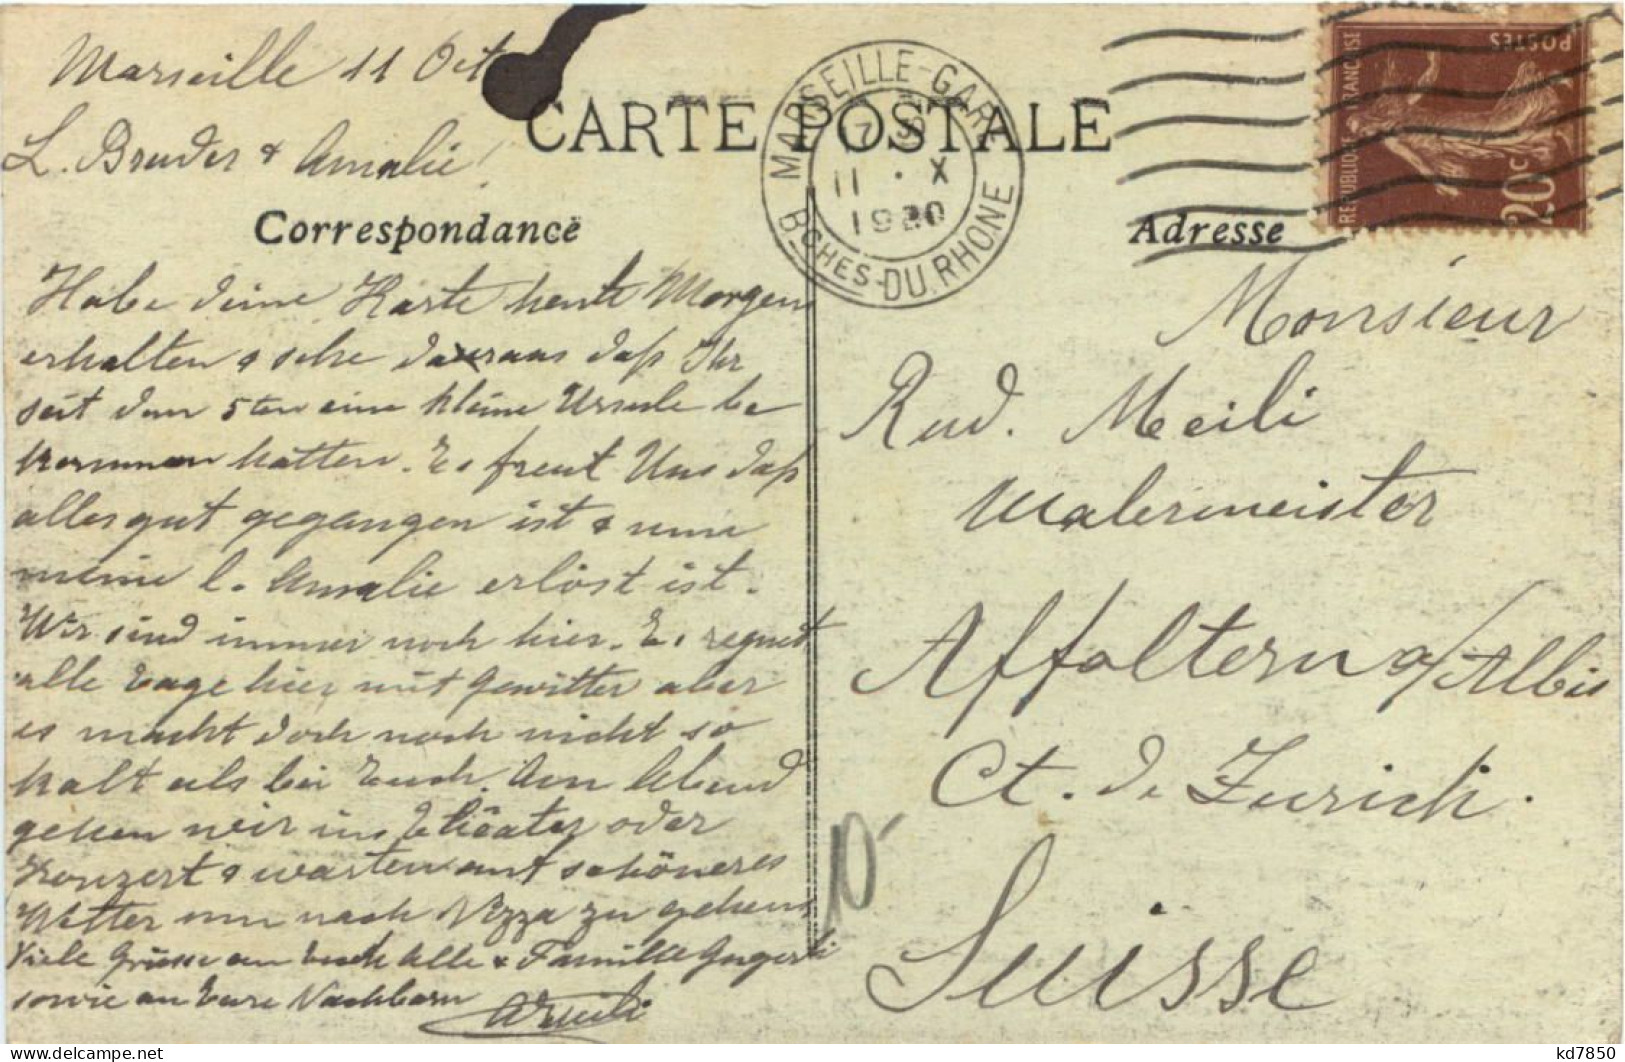 Marseille 11 Oct
L. Bruder & Amalie!
CARTE POSTALE
Correspondance
Habe deine Karte heute Morgen
erhalten & sehe daraus daß Ihr
seit dem 5ten eine kleine Ursule be
kommen hattet. Es freut Uns daß
alles gut gegangen ist & nun
meine l. Amalie erlöst ist.
Wir sind immer noch hier. Es regnet
alle Tage hier mit Gewitter aber
es macht doch noch nicht so
kalt als bei Euch. Am Abend
gehen wir ins Theater oder
Konzert & warten auf schöneres
Wetter um nach Nizza zu gehen
Viele Grüsse an Euch Alle & Familie
sowie an Eure Nachbarn
AMeili
MARSEILLE-GARE
11 · X
1920
BCHES-DU-RHONE
REPUBLIQUE FRANCAISE
POSTES
20c
Adresse
Monsieur
Rud. Meili
Malermeister
Affoltern a/Albis
Ct. de Zurich.
Suisse
10-
delcampe.net
kd7850